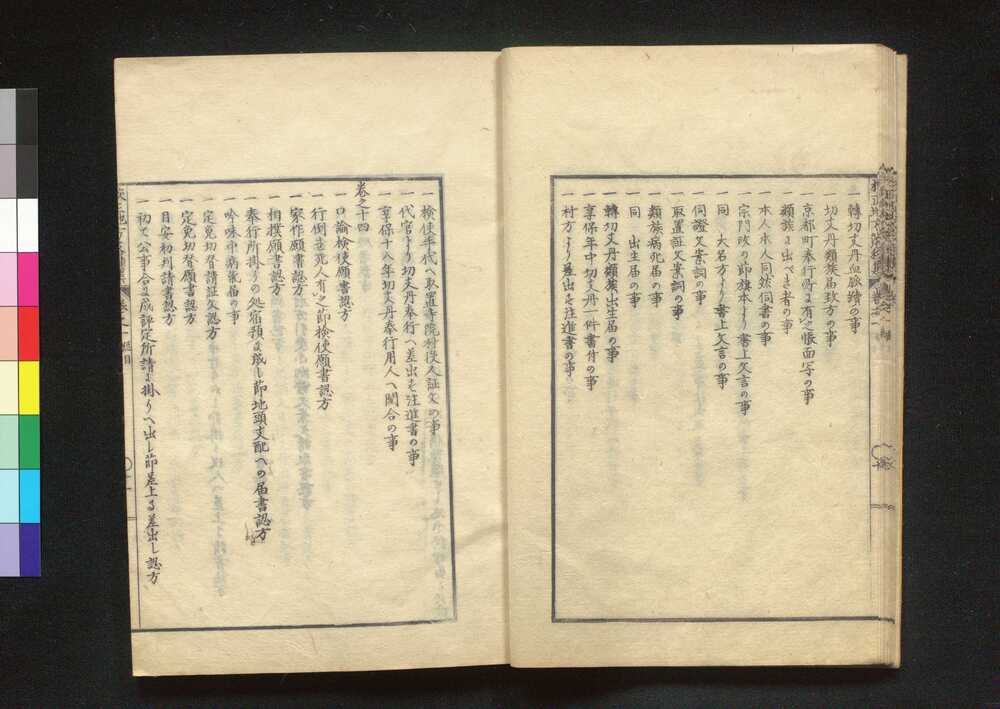 一 轉切支丹血脉續の事
一 切支丹類族届致方の事
一 京都町奉行所に有之帳面写の事
一 類族に出べき者の事
一 本人本人同然伺書の事
一 宗門改の節旗本より書上文言の事
一 同 大名方より書上文言の事
一 伺證文案詞の事
一 取置証文案詞の事
一 類族病死届の事
一 同 出生届の事
一 轉切支丹類族出生届の事
一 享保年中切支丹一件書付の事
一 村方より差出す注進書の事
一 検使手代へ取置寺院村役人証文の事
一 代官より切支丹奉行へ差出す注進書の事
一 享保十八年切支丹奉行用人へ聞合の事
巻之十四
一 口論検使願書認方
一 行倒並死人有之節検使願書認方
一 家作願書認方
一 相撲願書認方
一 奉行所掛りの処宿預に成し節地頭支配への届書認方
一 吟味中病氣届の事
一 定免切替請証文認方
一 定免切替願書認方
一 目安初判請書認方
一 初て公事合に成評定所請に掛りへ出し節差上る差出し認方